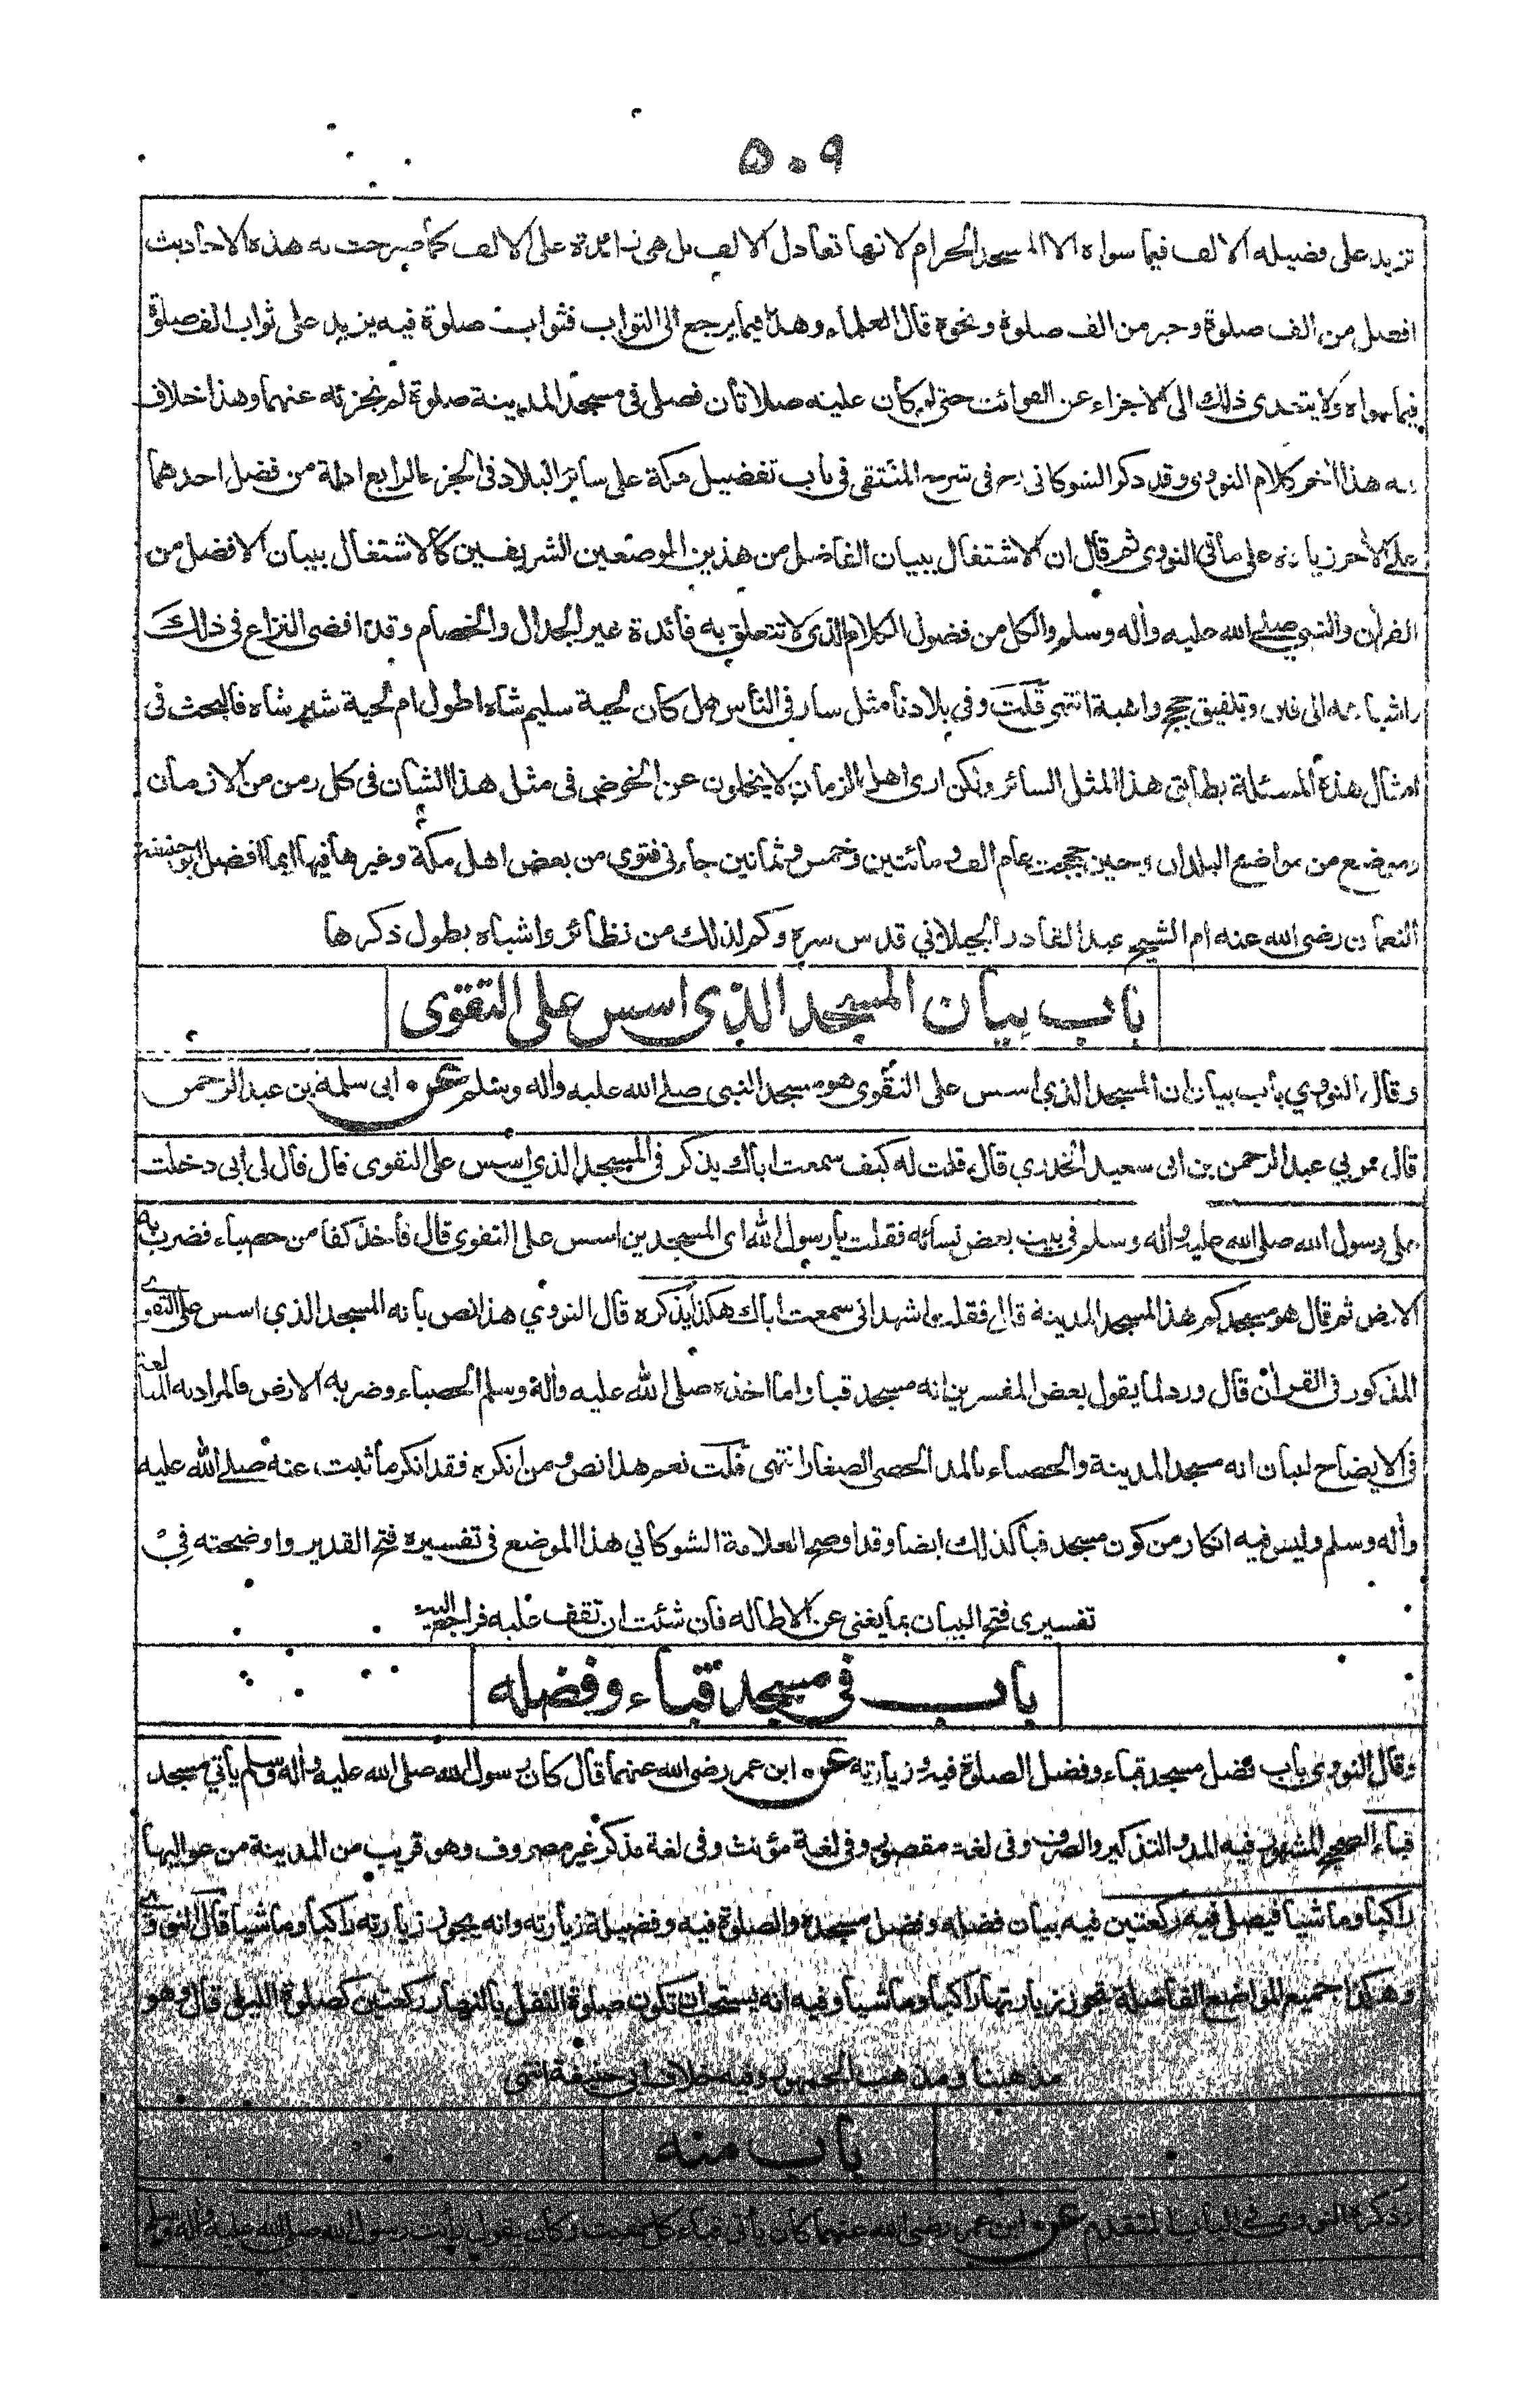 ۵۰۹
تزيد على فضيلة الالف فيما سواه الا المسجد الحرام لانها تعادل الالف بل هي زائدة على الالف كما صرحت به هذه الاحاديث
افضل من الف صلوة وخير من الف صلوة ونحوه قال العلماء وهذا فيما يرجع الى الثواب فثواب صلوة فيه يزيد على ثواب الف صلوة
فيما سواه ولا يتعدى ذلك الى الاجزاء عن الفوائت حتى لو كان عليه صلاتان فصلى في مسجد المدينة صلوة لم تجزئه عنهما وهذا خلاف
فيه هذا اخر كلام النووي وقد ذكر الشوكاني رح في شرح المنتقى في باب تفضيل مكة على سائر البلاد في الجزء الرابع ادلة من فضل احدهما
على الأخر زيادة على ماتى النووي ثم قال ان الاشتغال ببيان الفاضل من هذين الموضعين الشريفين كالاشتغال ببيان الافضل من
القرأن والنبي صلى الله عليه وأله وسلم والكل من فضول الكلام الذي لا تتعلق به فائدة غير الجدال والخصام وقد افضى النزاع في ذلك
واشباهه الى فتن وتلفيق حجج واهية انتهى قلت وفي بلادنا مثل سار في الناس هل كان لحية سليم شاه اطول ام لحية شير شاه فالبحث في
امثال هذه المسئلة يطابق هذا المثل السائر ولكن ارى اهل الزمان لا يخلون عن الخوض في مثل هذا الشان في كل زمن من الازمان
وموضع من مواضع البلدان وحين حججت عام الف ومائتين وخمس وثمانين جاءني فتوى من بعض اهل مكة وغيرها فيها ايما افضل ابو حنيفة
النعمان رضي الله عنه ام الشيخ عبد القادر الجيلاني قدس سره وكم لذلك من نظائر واشباه يطول ذكرها
باب بيان المسجد الذي اسس على التقوى
وقال النووي باب بيان ان المسجد الذي اسس على التقوى هو مسجد النبي صلى الله عليه وأله وسلم عن ابي سلمة بن عبد الرحمن
قال مر بي عبد الرحمن بن ابي سعيد الخدري قال قلت له كيف سمعت اباك يذكر في المسجد الذي اسس على التقوى قال قال لي ابي دخلت
على رسول الله صلى الله عليه وأله وسلم في بيت بعض نسائه فقلت يا رسول الله اي المسجدين اسس على التقوى قال فاخذ كفا من حصباء فضرب به
الارض ثم قال هو مسجدكم هذا لمسجد المدينة قال فقلت اشهد اني سمعت اباك هكذا يذكره قال النووي هذا نص بانه المسجد الذي اسس على التقوى
المذكور في القرأن قال ورد لما يقول بعض المفسرين انه مسجد قبا واما اخذه صلى الله عليه وأله وسلم الحصباء وضربه الارض فالمراد به المبالغة
في الايضاح لبيان انه مسجد المدينة والحصباء بالمد الحصى الصغار انتهى قلت نعم هذا نص ومن انكره فقد انكر ما ثبت عنه صلى الله عليه
وأله وسلم وليس فيه انكار من كون مسجد قبا كذلك ايضا وقد اوضح العلامة الشوكاني هذا الموضع في تفسيره فتح القدير واوضحته في
تفسيري فتح البيان بما يغني عن الاطالة فان شئت ان تقف عليه فراجع اليه
باب في مسجد قباء وفضله
وقال النووي باب فضل مسجد قباء وفضل الصلوة فيه وزيارته عن ابن عمر رضي الله عنهما قال كان رسول الله صلى الله عليه وأله وسلم يأتي مسجد
قباء الصحيح المشهور فيه المد والتذكير والصرف وفي لغة مقصور وفي لغة مؤنث وفي لغة مذكر غير مصروف وهو قريب من المدينة من عواليها
راكبا وماشيا فيصلي فيه ركعتين فيه بيان فضله وفضل مسجده والصلوة فيه وفضيلة زيارته وانه يجوز زيارته راكبا وماشيا قال النووي
وهكذا جميع المواضع الفاضلة تجوز زيارتها راكبا وماشيا وفيه انه يستحب ان تكون صلوة النفل بالنهار ركعتين كصلوة الليل قال وهو
مذهبنا ومذهب الجمهور وفيه خلاف ابي حنيفة انتهى
باب منه
وذكره النووي في الباب المتقدم عن ابن عمر رضي الله عنهما كان يأتي قباء كل سبت وكان يقول رأيت رسول الله صلى الله عليه وأله وسلم